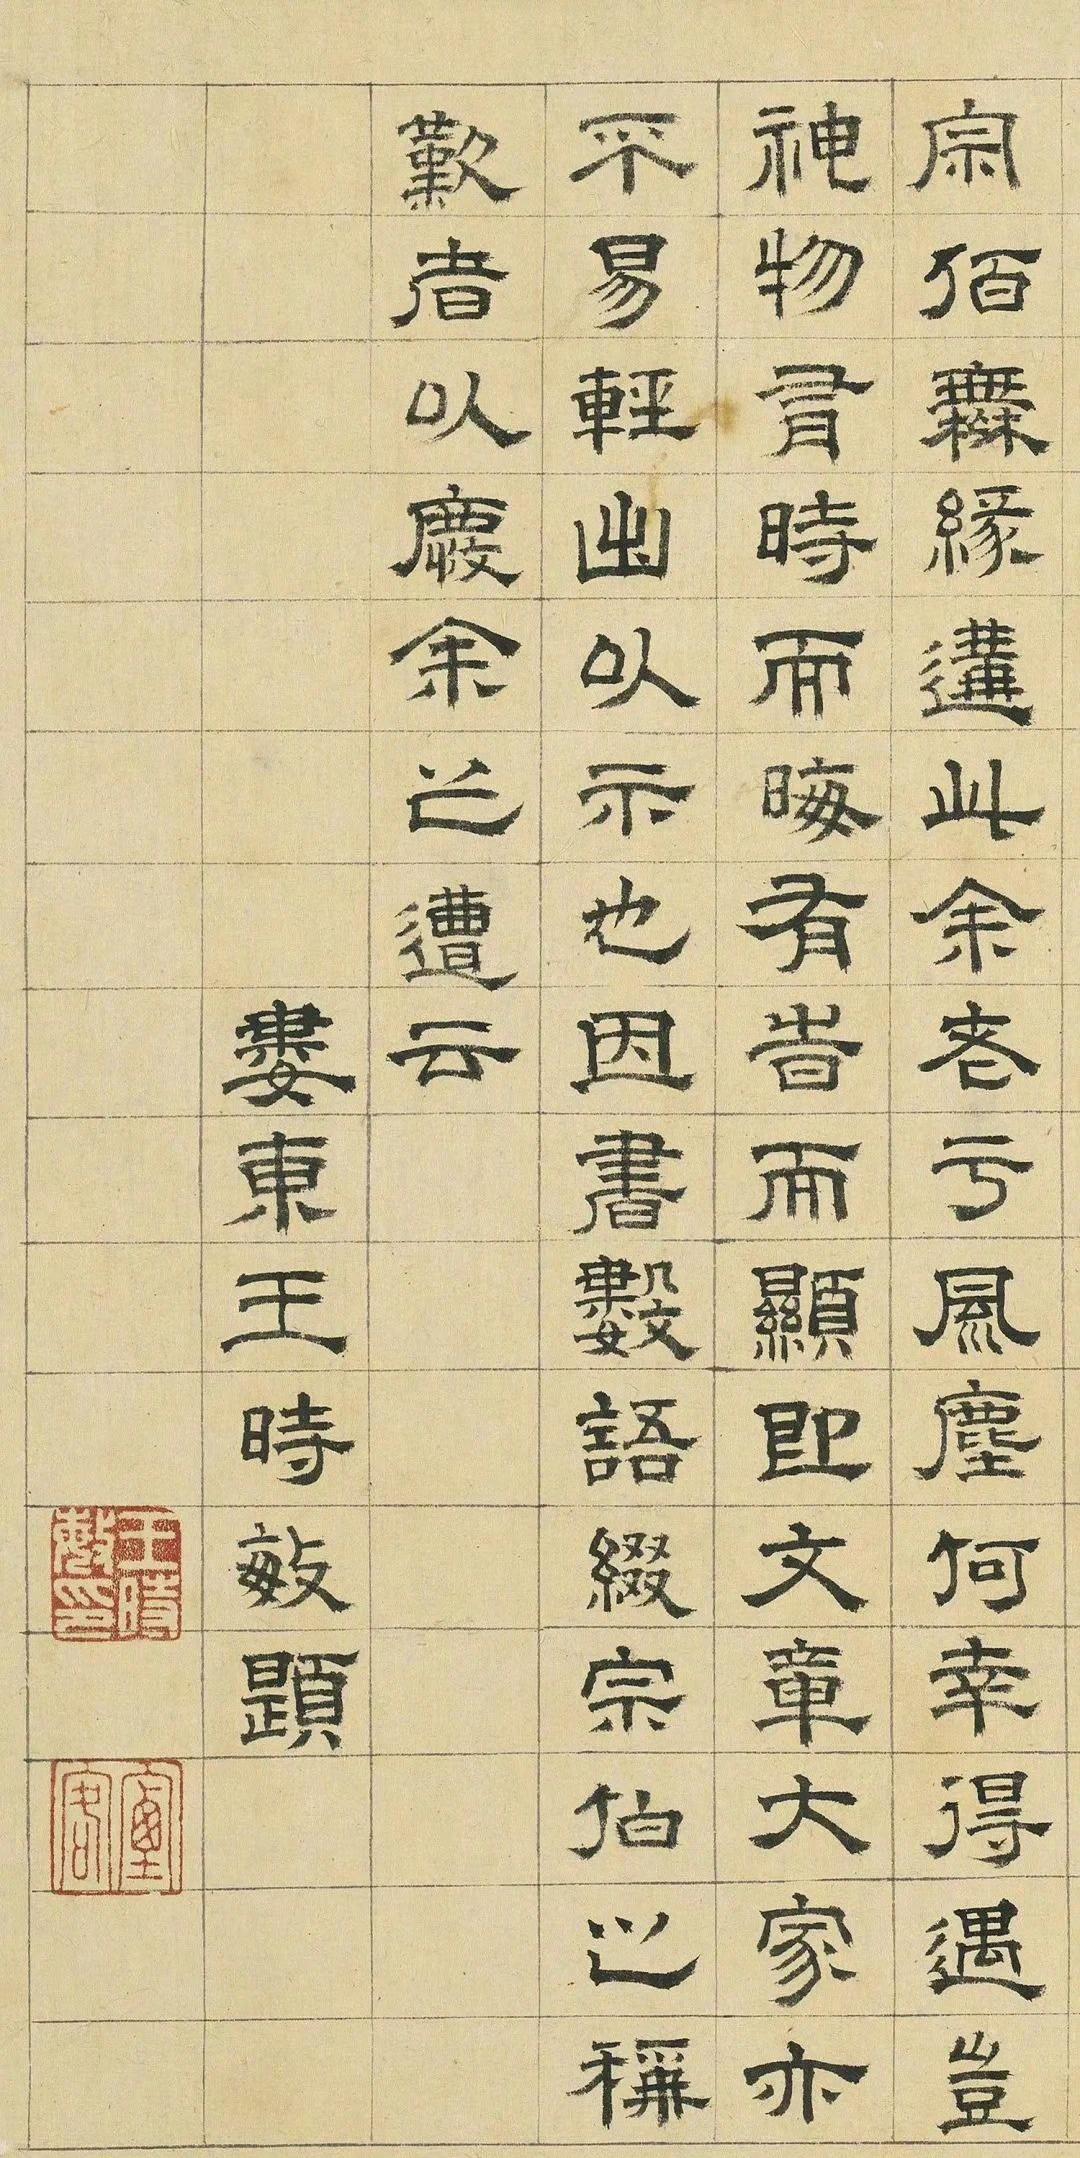 宗佰橆緣遘此余老亐風塵何幸得遇豈
神物有時而晦有旹而顯即文章大家亦
不易輕出以示也因書數語綴宗伯之稱
歎者以慶余之遭云
婁東王時敏題
王時敏印